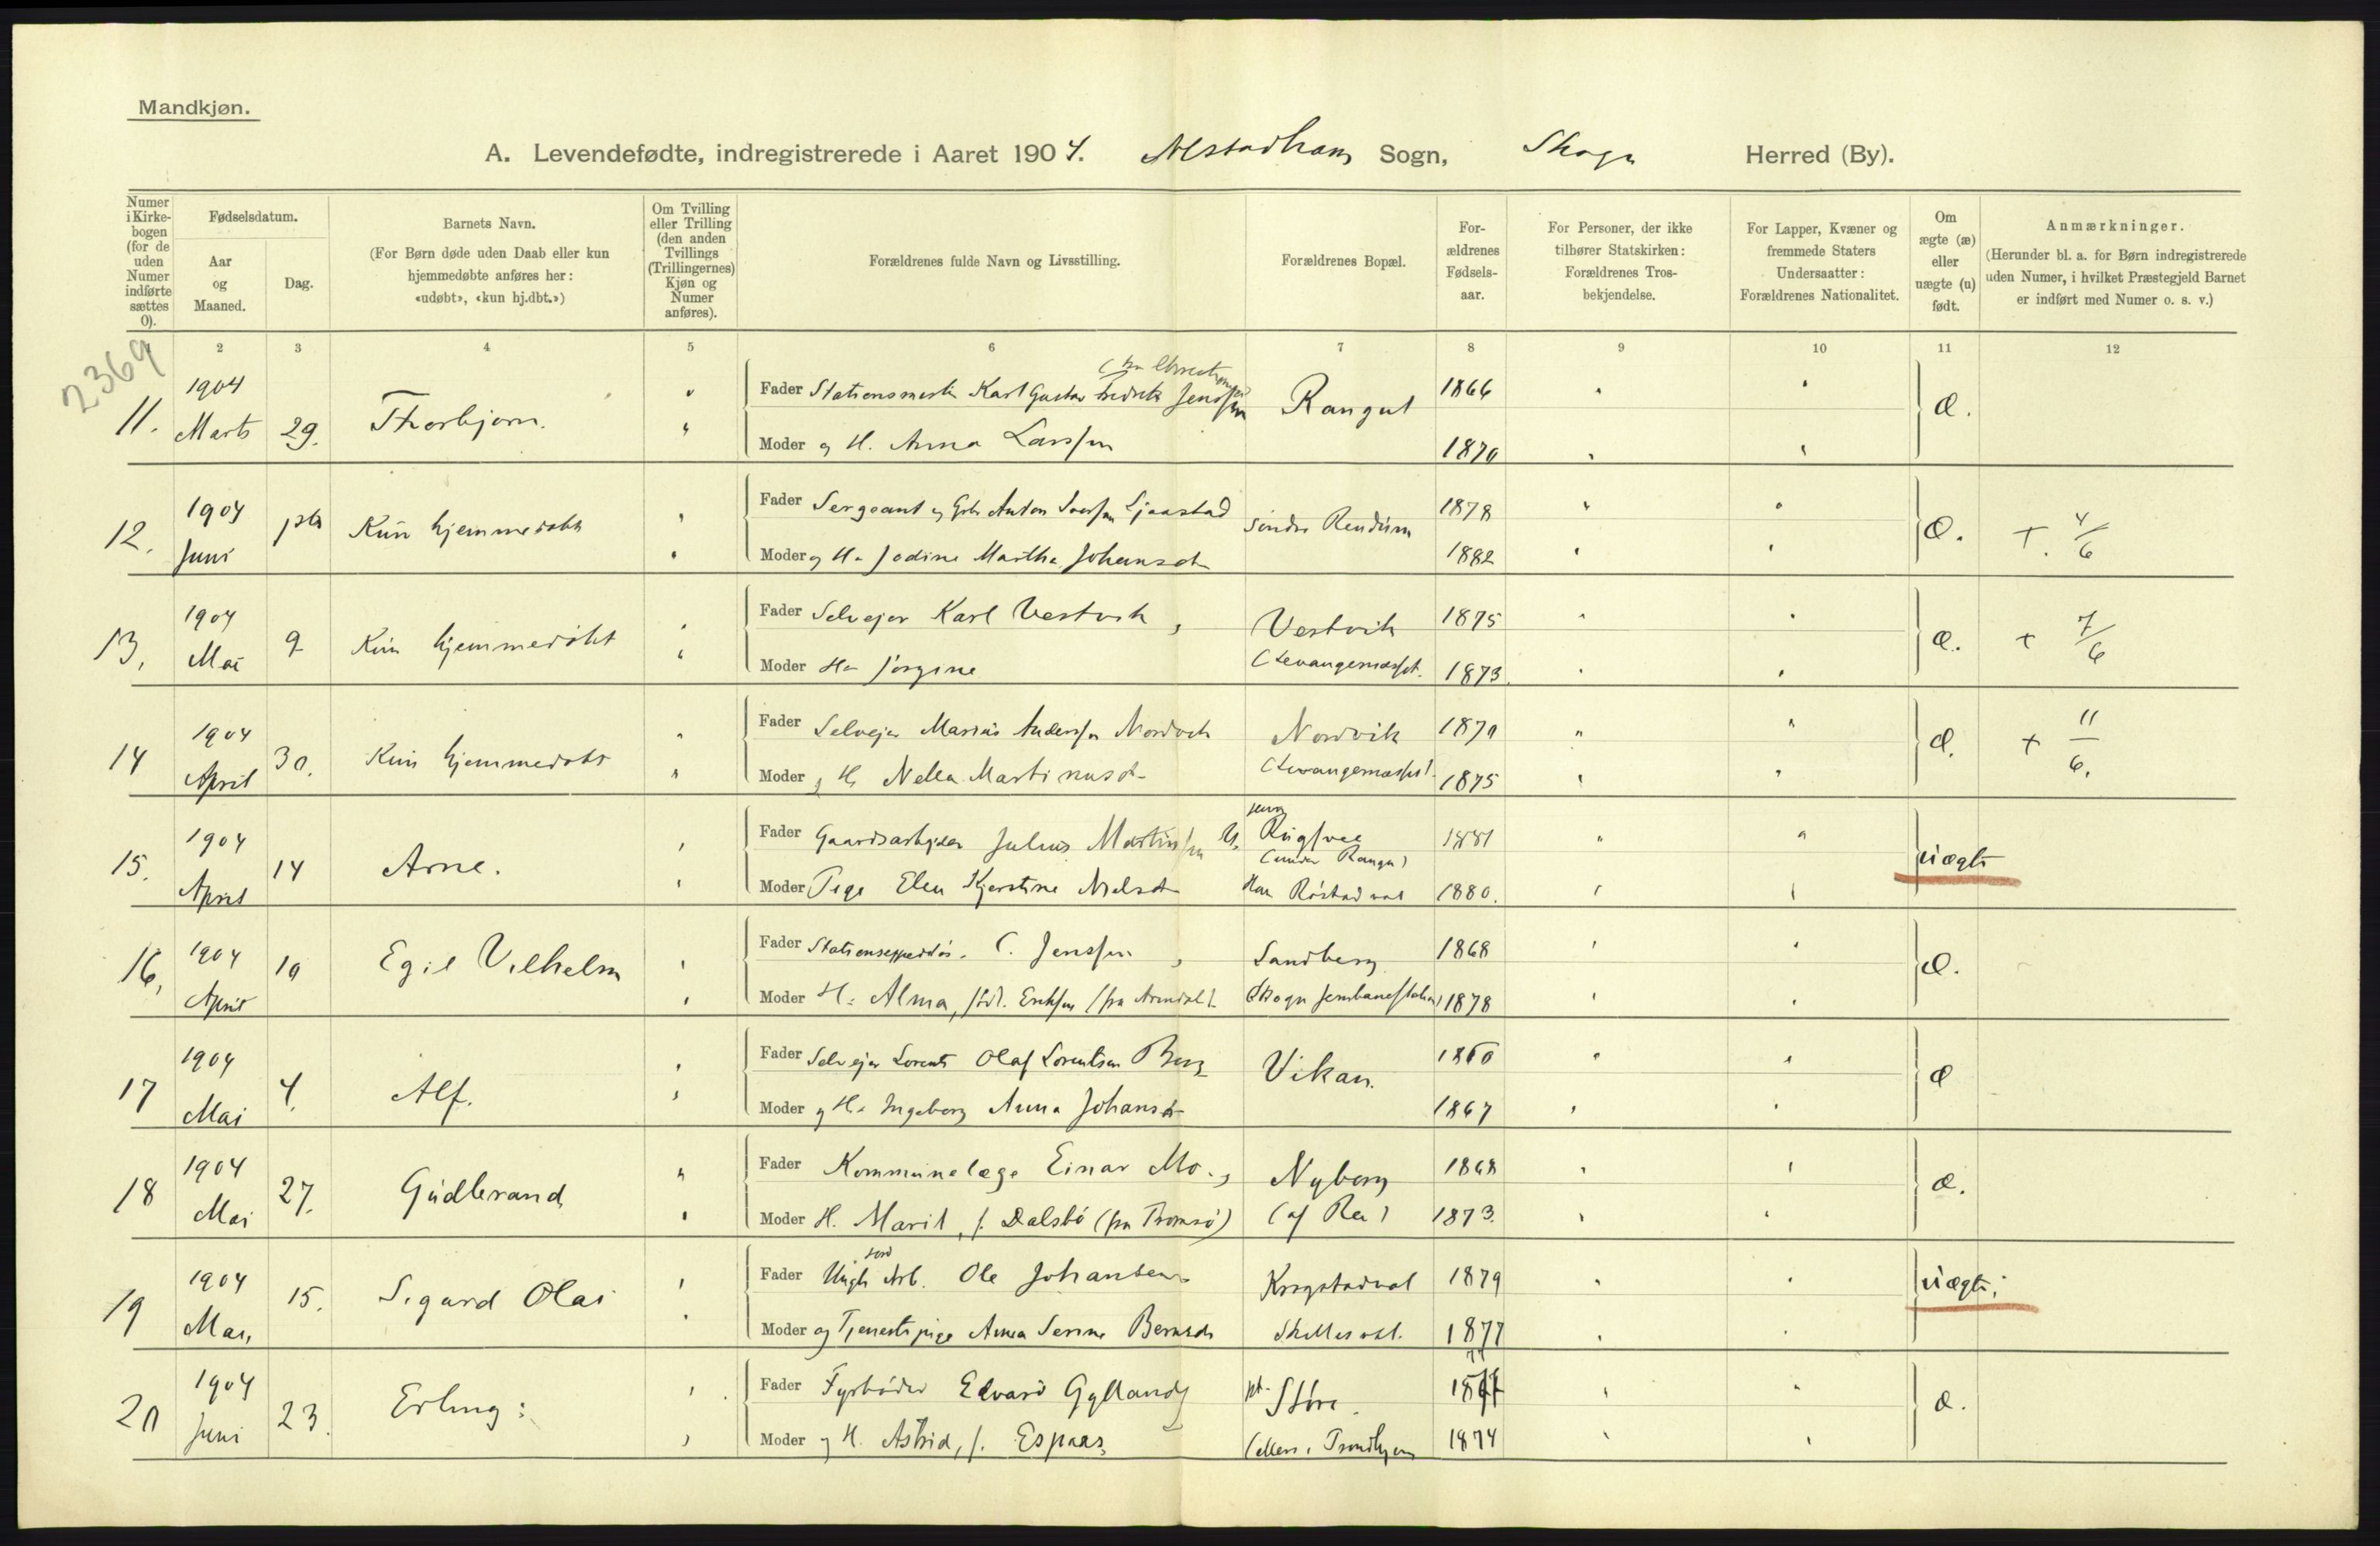 Mandkjøn.
A. Levendefødte, indregistrerede i Aaret 1904. Alstadhaug Sogn, Skogn Herred (By).
Numer i Kirkebogen (for de uden Numer indførte sættes 0).
Fødselsdatum.
Aar og Maaned.
Dag.
Barnets Navn.
(For Børn døde uden Daab eller kun hjemmedøbte anføres her: «udøbt», «kun hj.dbt.»)
Om Tvilling eller Trilling (den anden Tvillings (Trillingernes) Kjøn og Numer anføres).
Forældrenes fulde Navn og Livsstilling.
Forældrenes Bopæl.
Forældrenes Fødselsaar.
For Personer, der ikke tilhører Statskirken: Forældrenes Trosbekjendelse.
For Lapper, Kvæner og fremmede Staters Undersaatter: Forældrenes Nationalitet.
Om ægte (æ) eller uægte (u) født.
Anmærkninger.
(Herunder bl. a. for Børn indregistrerede uden Numer, i hvilket Præstegjeld Barnet er indført med Numer o. s. v.)
1 2 3 4 5 6 7 8 9 10 11 12
2369
11. 1904 Marts 29. Thorbjørn. Fader Stationsmester Karl Gustav Fredrik Jenssen Rangul 1866 æ.
Moder og H. Anna Larssen 1870
12. 1904 Juni Kun hjemmedøbt Fader Sergeant og Anton Ljaastad Søndre Rendum 1878 æ. + 4/6
Moder og H. Jodine Martha Johansdt 1882
13, 1904 Mai 9 Kun hjemmedøbt Fader Selveier Karl Vestvik, Vestvik 1875 æ. + 7/6
Moder H. Jørgine (Levangernæsset. 1873.
14 1904 April 30. Kun hjemmedøbt Fader Selveier Marius Anderssen Nordvik Nordvik 1870 æ. + 11/6.
Moder og H. Nella Martinusdt (Levangernæsset. 1875
15. 1904 April 14 Arne. Fader Gaardsarbejder Julius Martinssen U. (under Rangul) 1881 uægte
Moder Pige Elen Kjerstine Nielsdt Røstadval 1880.
16, 1904 April 10 Egil Vilhelm Fader C. Jenssen, Sandberg 1868 æ.
Moder H. Alma, født. Eriksen (fra Arendal). (Skogn Jernbanestation) 1878
17 1904 Mai 4. Alf. Fader Selveier Lorents Olaf Lorentsen Berg Vikan. 1860 æ
Moder og H. Ingeborg Anna Johansdt 1867
18 1904 Mai 27. Gudbrand Fader Kommunelæge Einar Mo., Nyborg 1868 æ.
Moder H. Marit, f. Dalsbø (fra Tromsø) (af Re) 1873.
19 1904 Mai 15. Sigurd Olai Fader Ungk. Arb. Ole Johansen 1879 uægte.
Moder og Tjenestepige Anna Serine Berntsdt 1877
20 1904 Juni 23. Erling: Fader Fyrbøder Edvard Gylland pt. Støre. 1877 æ.
Moder og H. Astrid, f. Espaas (ellers i Trondhjem 1874